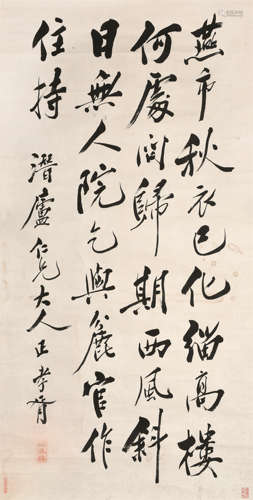 燕市秋衣已化緇高樓
何處問歸期西風斜
日無人院乞與麄官作
住持
潛廬仁兄大人正孝胥